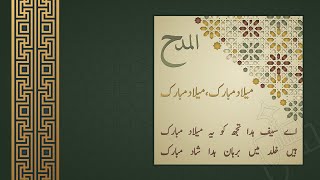 المدح
میلاد مبارک، میلاد مبارک
اے سیف ہدا تجھ کو یہ میلاد مبارک
ہیں خلد میں برہان ہدا شاد مبارک